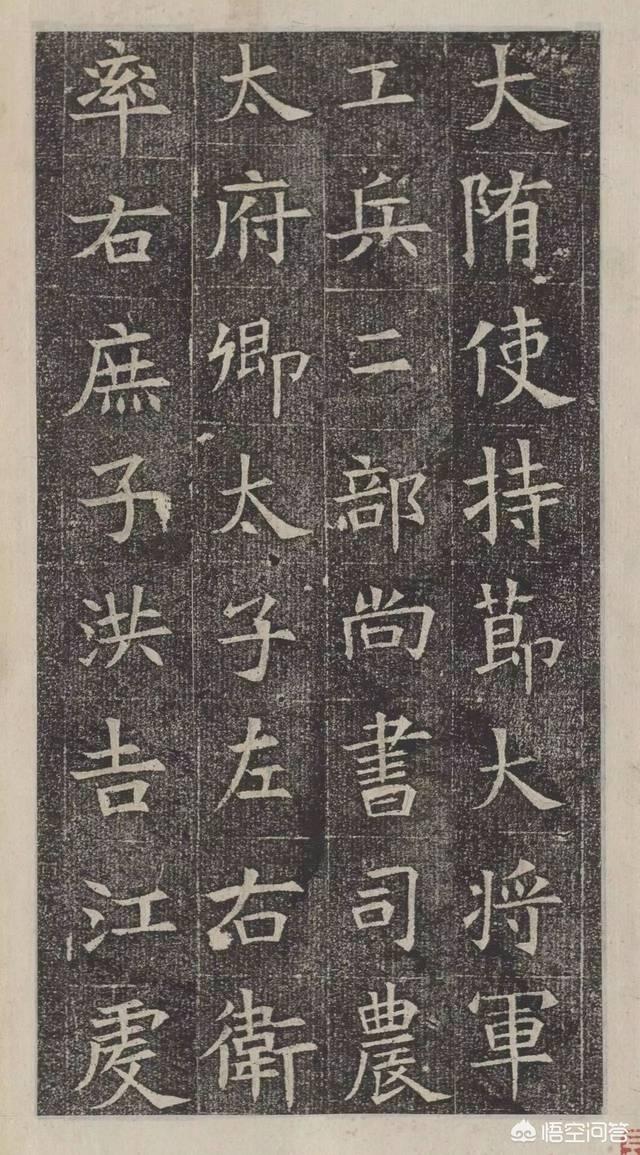 大隋使持節大將軍
工兵二部尚書司農
太府卿太子左右衛
率右庶子洪吉江虔
悟空问答